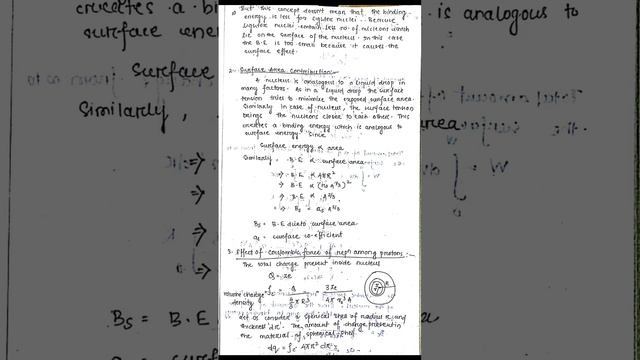 But this concept doesn't mean that the binding
energy is less for lighter nuclei. Because
lighter nuclei contain less no. of nucleons which
lie on the surface of the nucleus. In this case
the B.E is too small because it causes the
surface effect.
2. Surface Area Contribution:-
A nucleus is analogous to a liquid drop in
many factors. As in a liquid drop the surface
tension tries to minimize the exposed surface area.
Similarly in case of nucleus, the surface tension
brings the nucleons closer to each other. This
creates a binding energy which is analogous to
surface energy. Since
Surface energy ∝ area
Similarly, B.E ∝ surface area
⇒ B.E ∝ 4πR²
⇒ B.E ∝ (r₀ A^1/3)²
⇒ B.E ∝ A^2/3
⇒ Bs = as A^2/3
Bs = B.E due to surface area
as = surface co-efficient
3. Effect of Coulombic force of repⁿ among protons:-
The total charge present inside nucleus
Q = ze
Volume charge density
Let us consider a spherical shell of radius r and
thickness 'dr'. The amount of charge present in
the material of spherical shell
creates a bi
surface ener
Surface
Similarly,
⇒
⇒
⇒
⇒
Bs = B.E
is analogous to
area